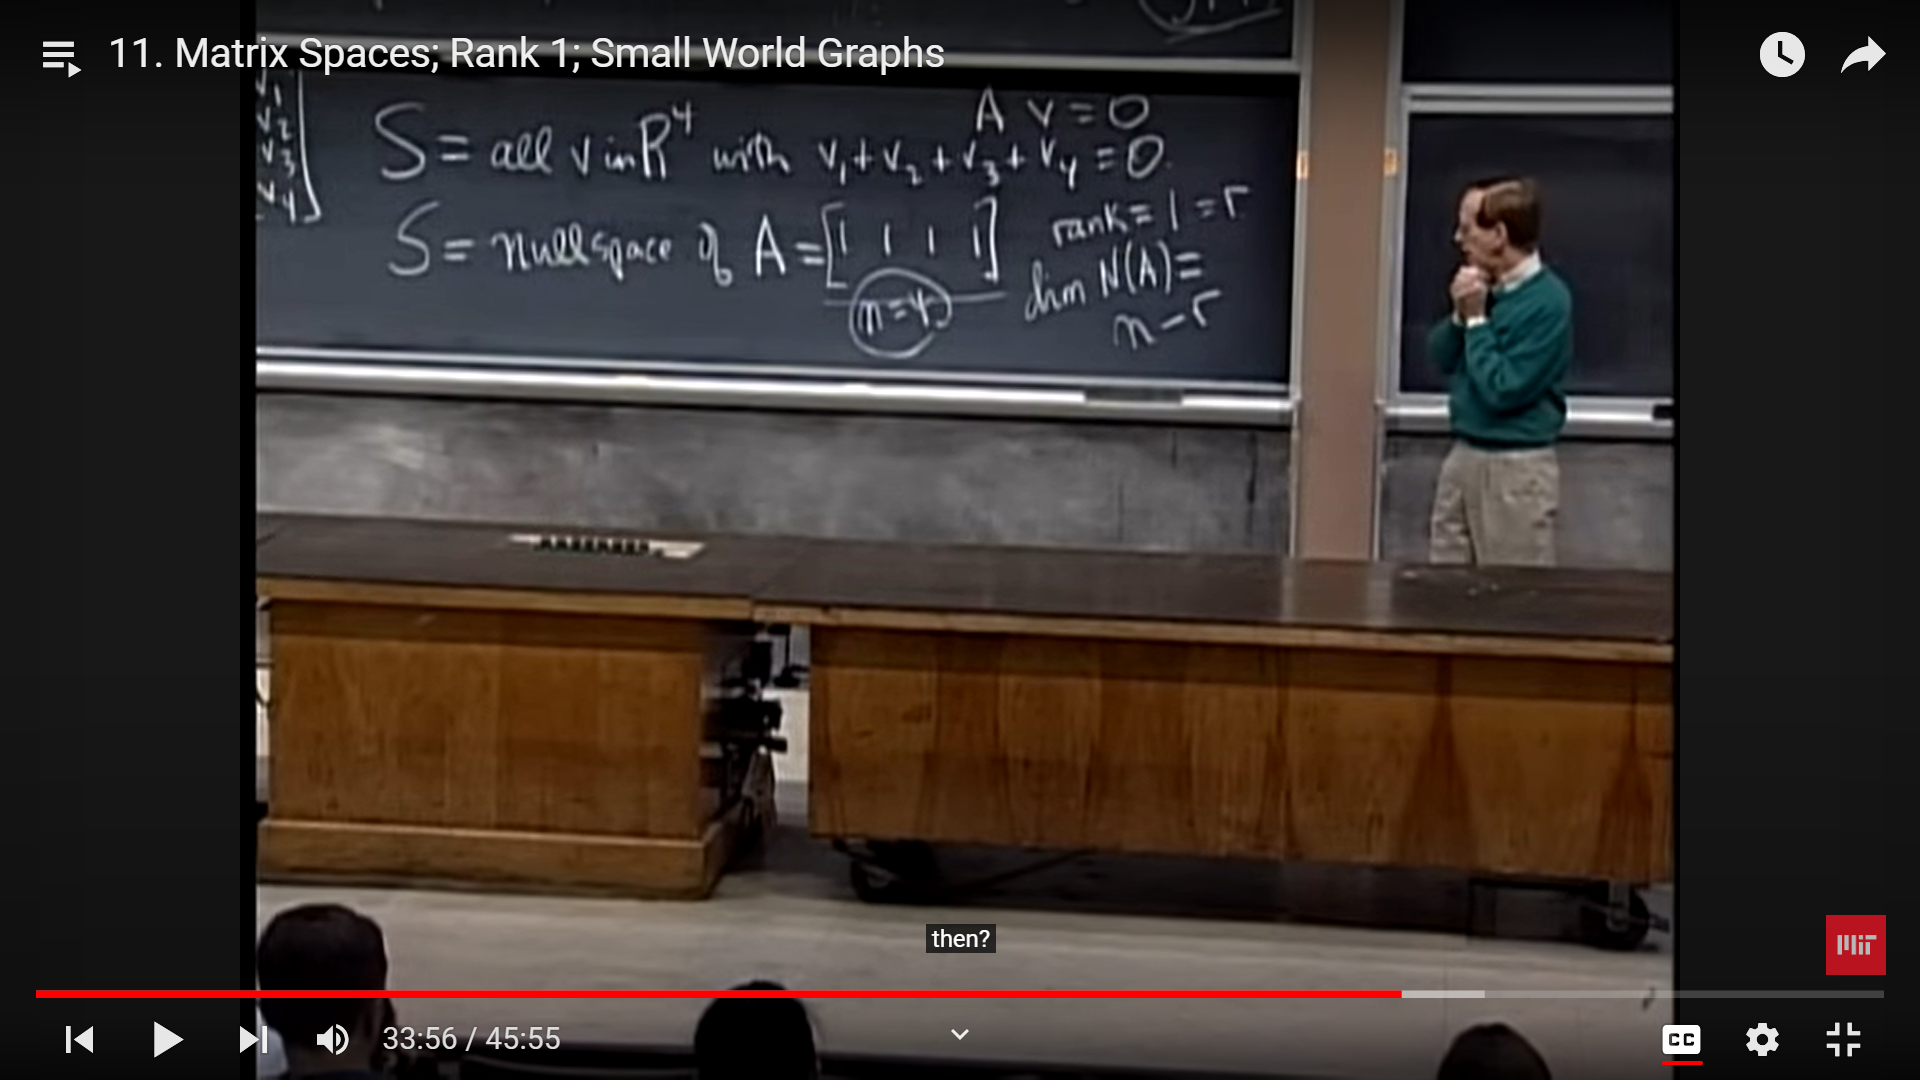 11. Matrix Spaces; Rank 1; Small World Graphs
v1
v2
v3
v4
A v = 0
S = all v in R⁴ with v₁ + v₂ + v₃ + v₄ = 0
S = nullspace of A = [1 1 1 1]
rank = 1 = r
n = 4
dim N(A) =
n - r
then?
MIT
33:56 / 45:55
CC